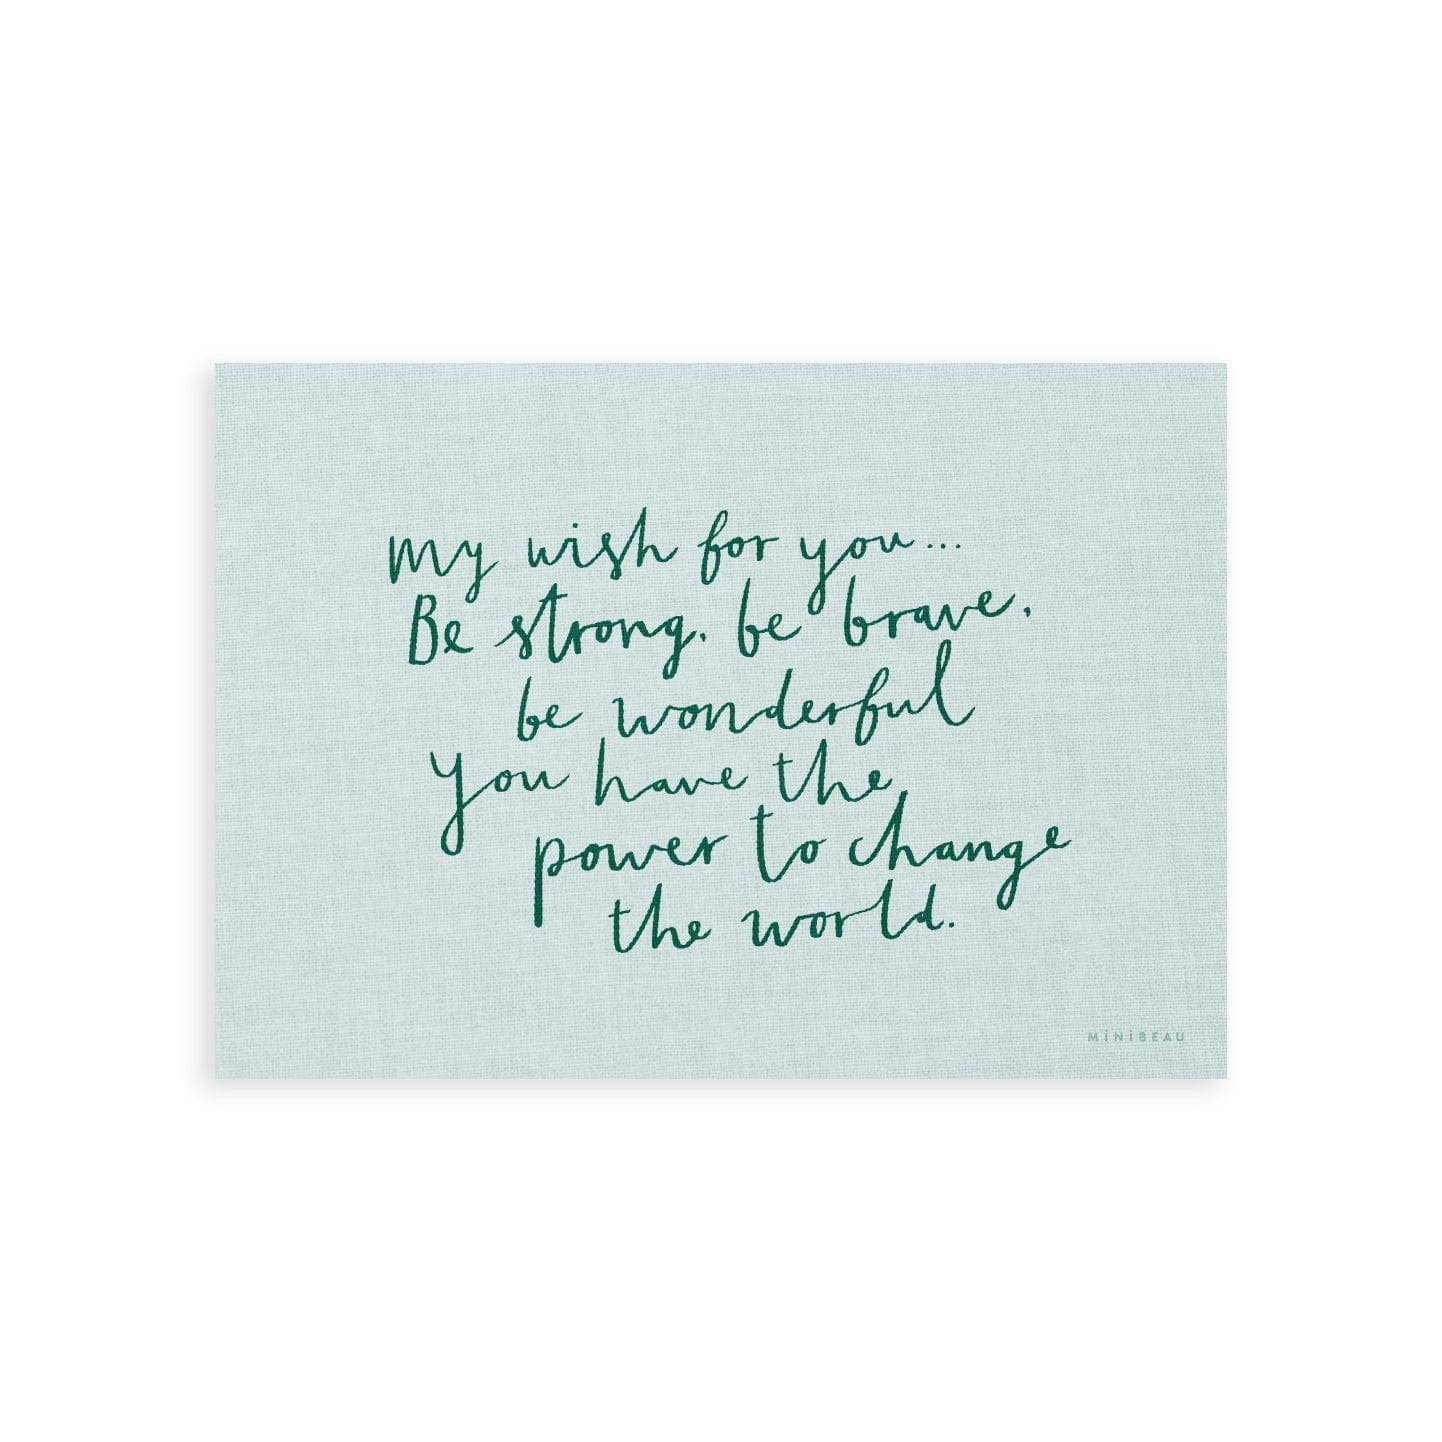 My wish for you...
Be strong, be brave,
be wonderful
You have the
power to change
the world.
MINIBEAU